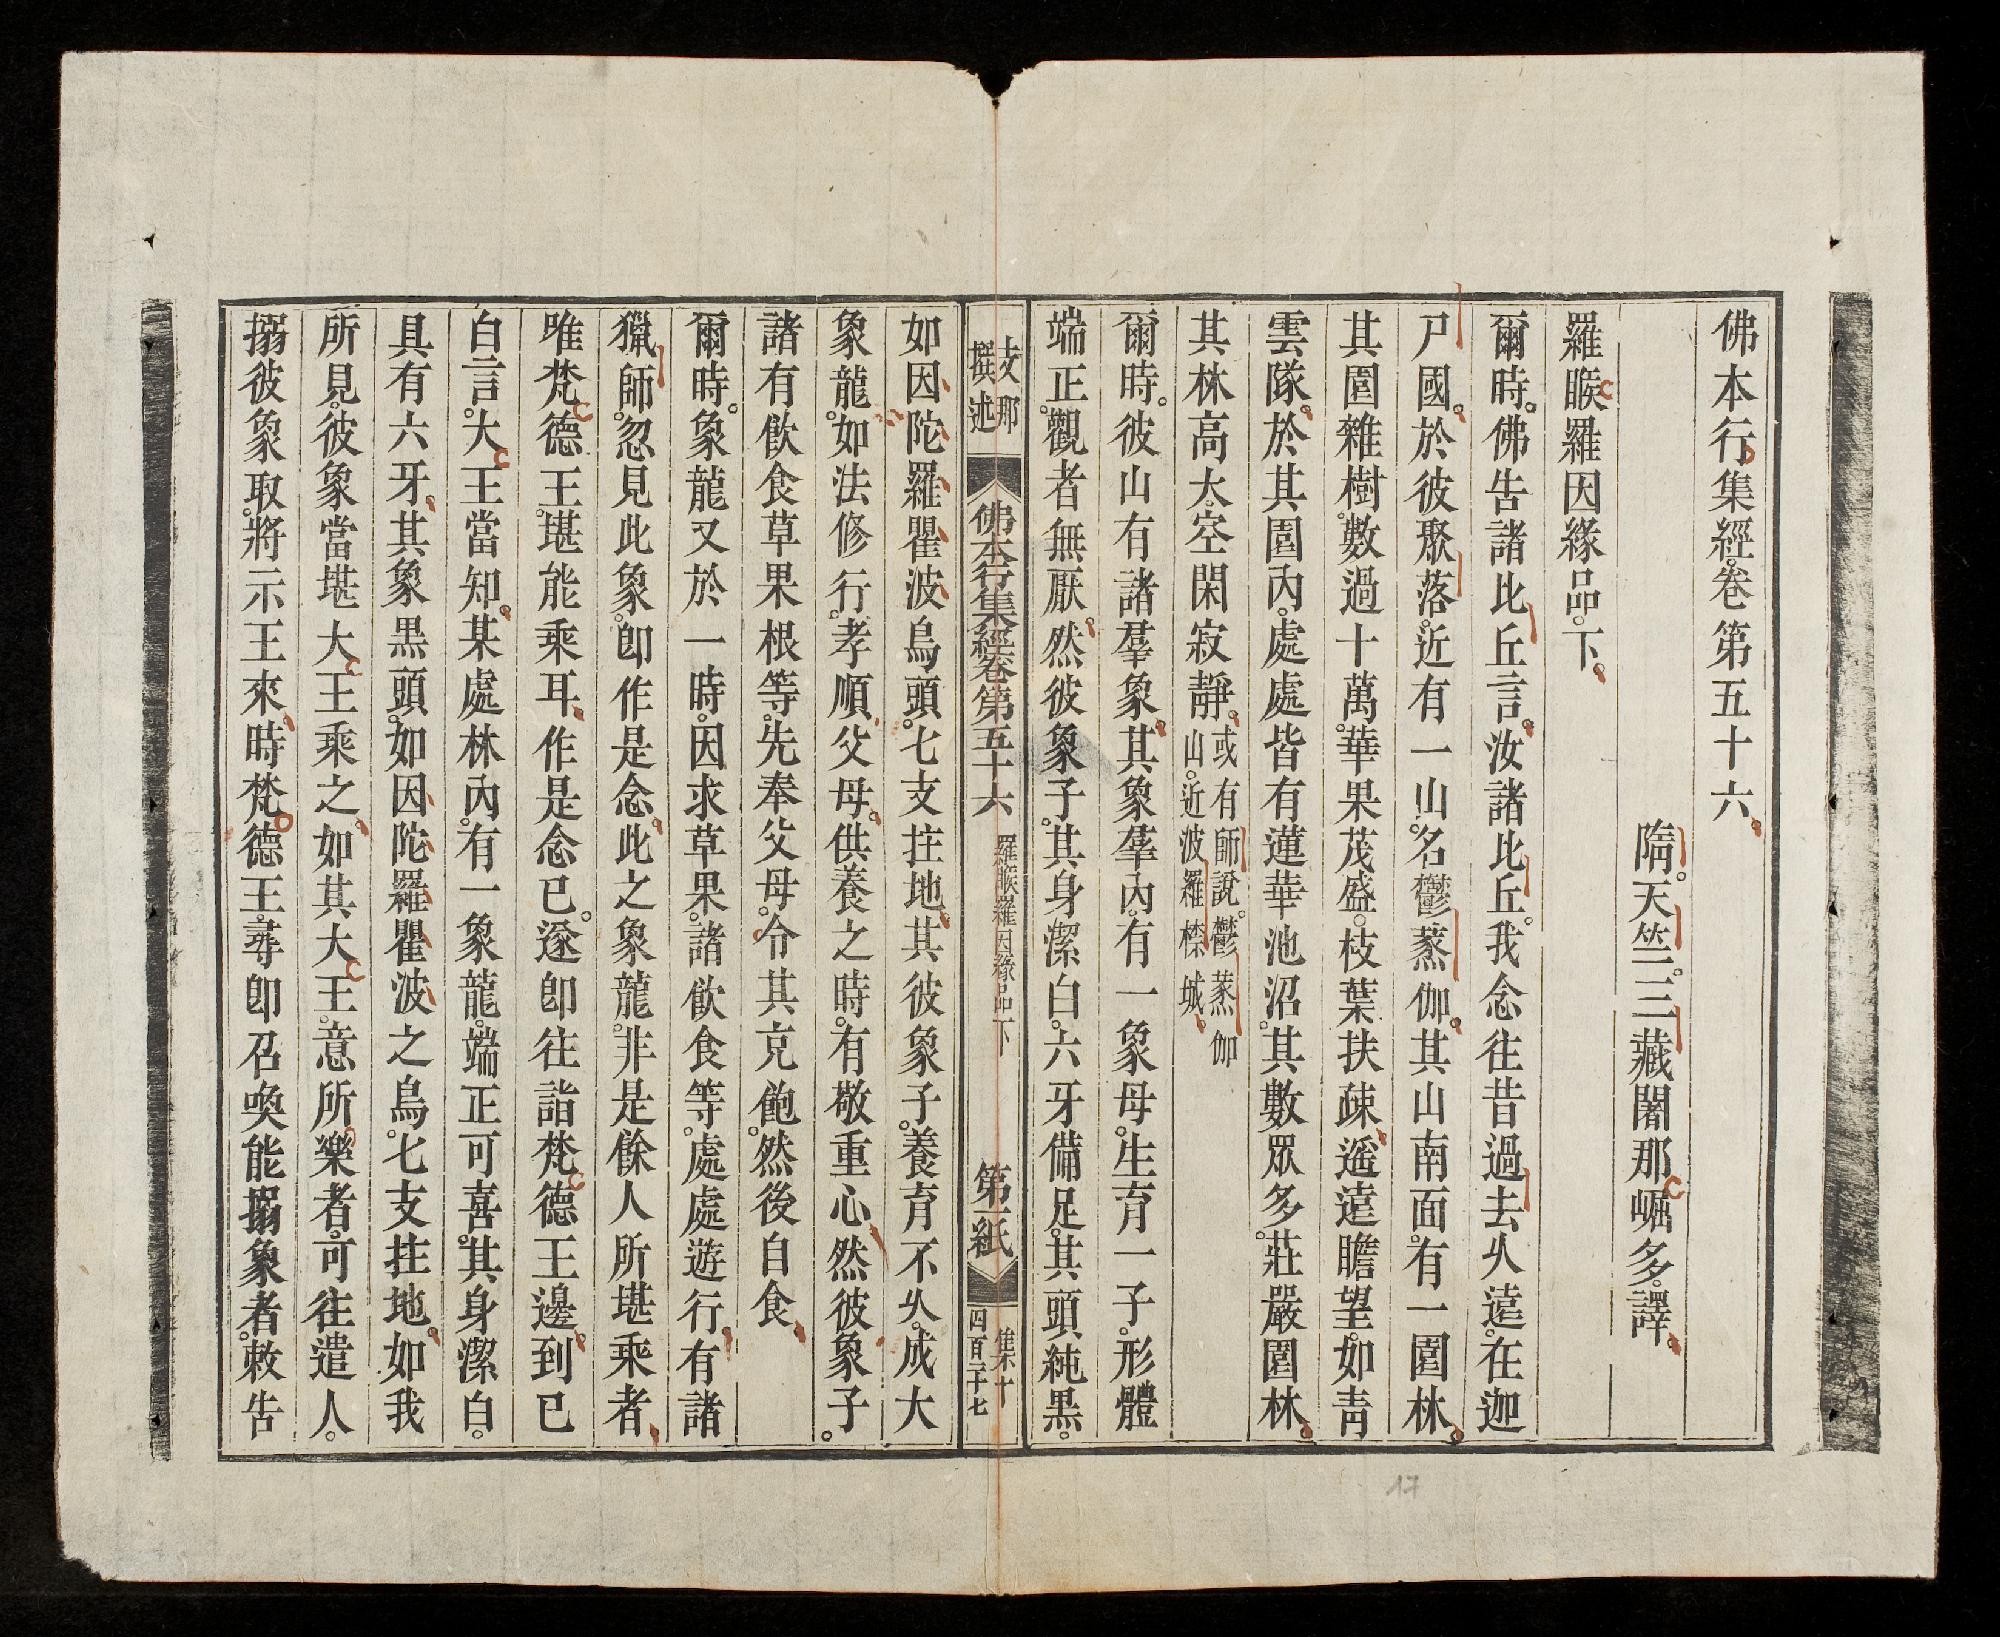 佛本行集經卷第五十六
隋。天竺。三藏闍那崛多。譯。
羅睺羅因緣品。下。
爾時。佛告諸比丘言。汝諸比丘。我念往昔過去久遠。在迦
尸國。於彼聚落。近有一山。名鬱蒸伽。其山南面。有一園林。
其園雜樹。數過十萬。華果茂盛。枝葉扶疎。遙遠瞻望。如青
雲隊。於其園內。處處皆有蓮華池沼。其數眾多。莊嚴園林。
其林高大。空閑寂靜。或有師說。鬱蒸伽
山。近波羅㮈城。
爾時。彼山有諸羣象。其象羣內。有一象母。生育一子。形體
端正。觀者無厭。然彼象子。其身潔白。六牙備足。其頭純黑。
支那
撰述
佛本行集經卷第五十六
羅睺羅因緣品下
第一紙
集十
四百二十七
如因陀羅瞿波烏頭。七支拄地。其彼象子。養育不久。成大
象龍。如法修行。孝順父母。供養之時。有敬重心。然彼象子。
諸有飲食草果根等。先奉父母。令其充飽。然後自食。
爾時。象龍又於一時。因求草果。諸飲食等。處處遊行。有諸
獵師。忽見此象。卽作是念。此之象龍。非是餘人所堪乘者。
唯梵德王。堪能乘耳。作是念已。遂卽往詣梵德王邊。到已
白言。大王當知。某處林內。有一象龍。端正可喜。其身潔白。
具有六牙。其象黑頭。如因陀羅瞿波之烏。七支拄地。如我
所見。彼象當堪大王乘之。如其大王。意所樂者。可往遣人。
搦彼象取。將示王來。時梵德王。尋卽召喚能搦象者。敕告
17